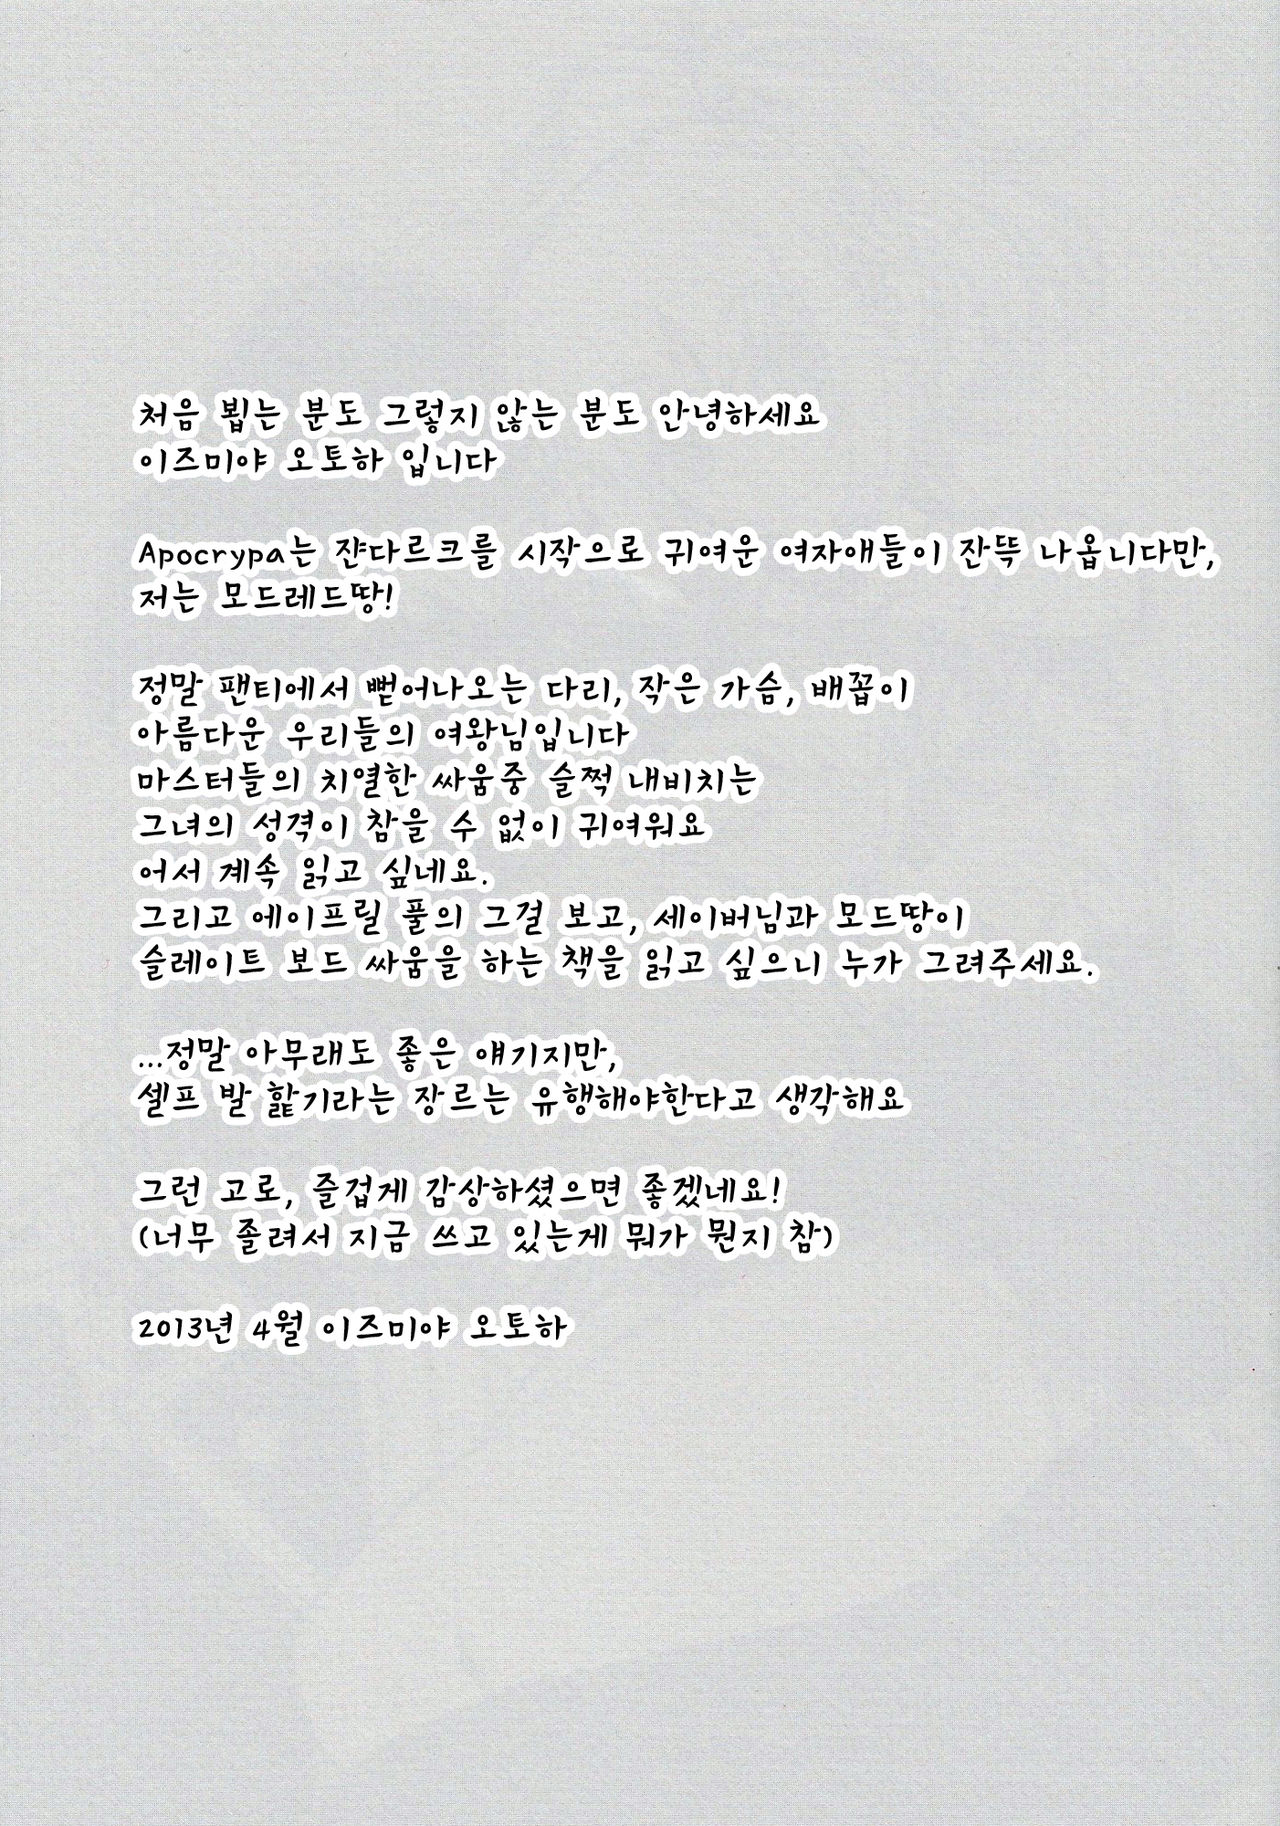 처음 뵙는 분도 그렇지 않는 분도 안녕하세요
이즈미야 오토하 입니다
Apocrypa는 쟌다르크를 시작으로 귀여운 여자애들이 잔뜩 나옵니다만,
저는 모드레드땅!
정말 팬티에서 뻗어나오는 다리, 작은 가슴, 배꼽이
아름다운 우리들의 여왕님입니다
마스터들의 치열한 싸움중 슬쩍 내비치는
그녀의 성격이 참을 수 없이 귀여워요
어서 계속 읽고 싶네요.
그리고 에이프릴 풀의 그걸 보고, 세이버님과 모드땅이
슬레이트 보드 싸움을 하는 책을 읽고 싶으니 누가 그려주세요.
...정말 아무래도 좋은 얘기지만,
셀프 발 핥기라는 장르는 유행해야한다고 생각해요
그런 고로, 즐겁게 감상하셨으면 좋겠네요!
(너무 졸려서 지금 쓰고 있는게 뭐가 뭔지 참)
2013년 4월 이즈미야 오토하